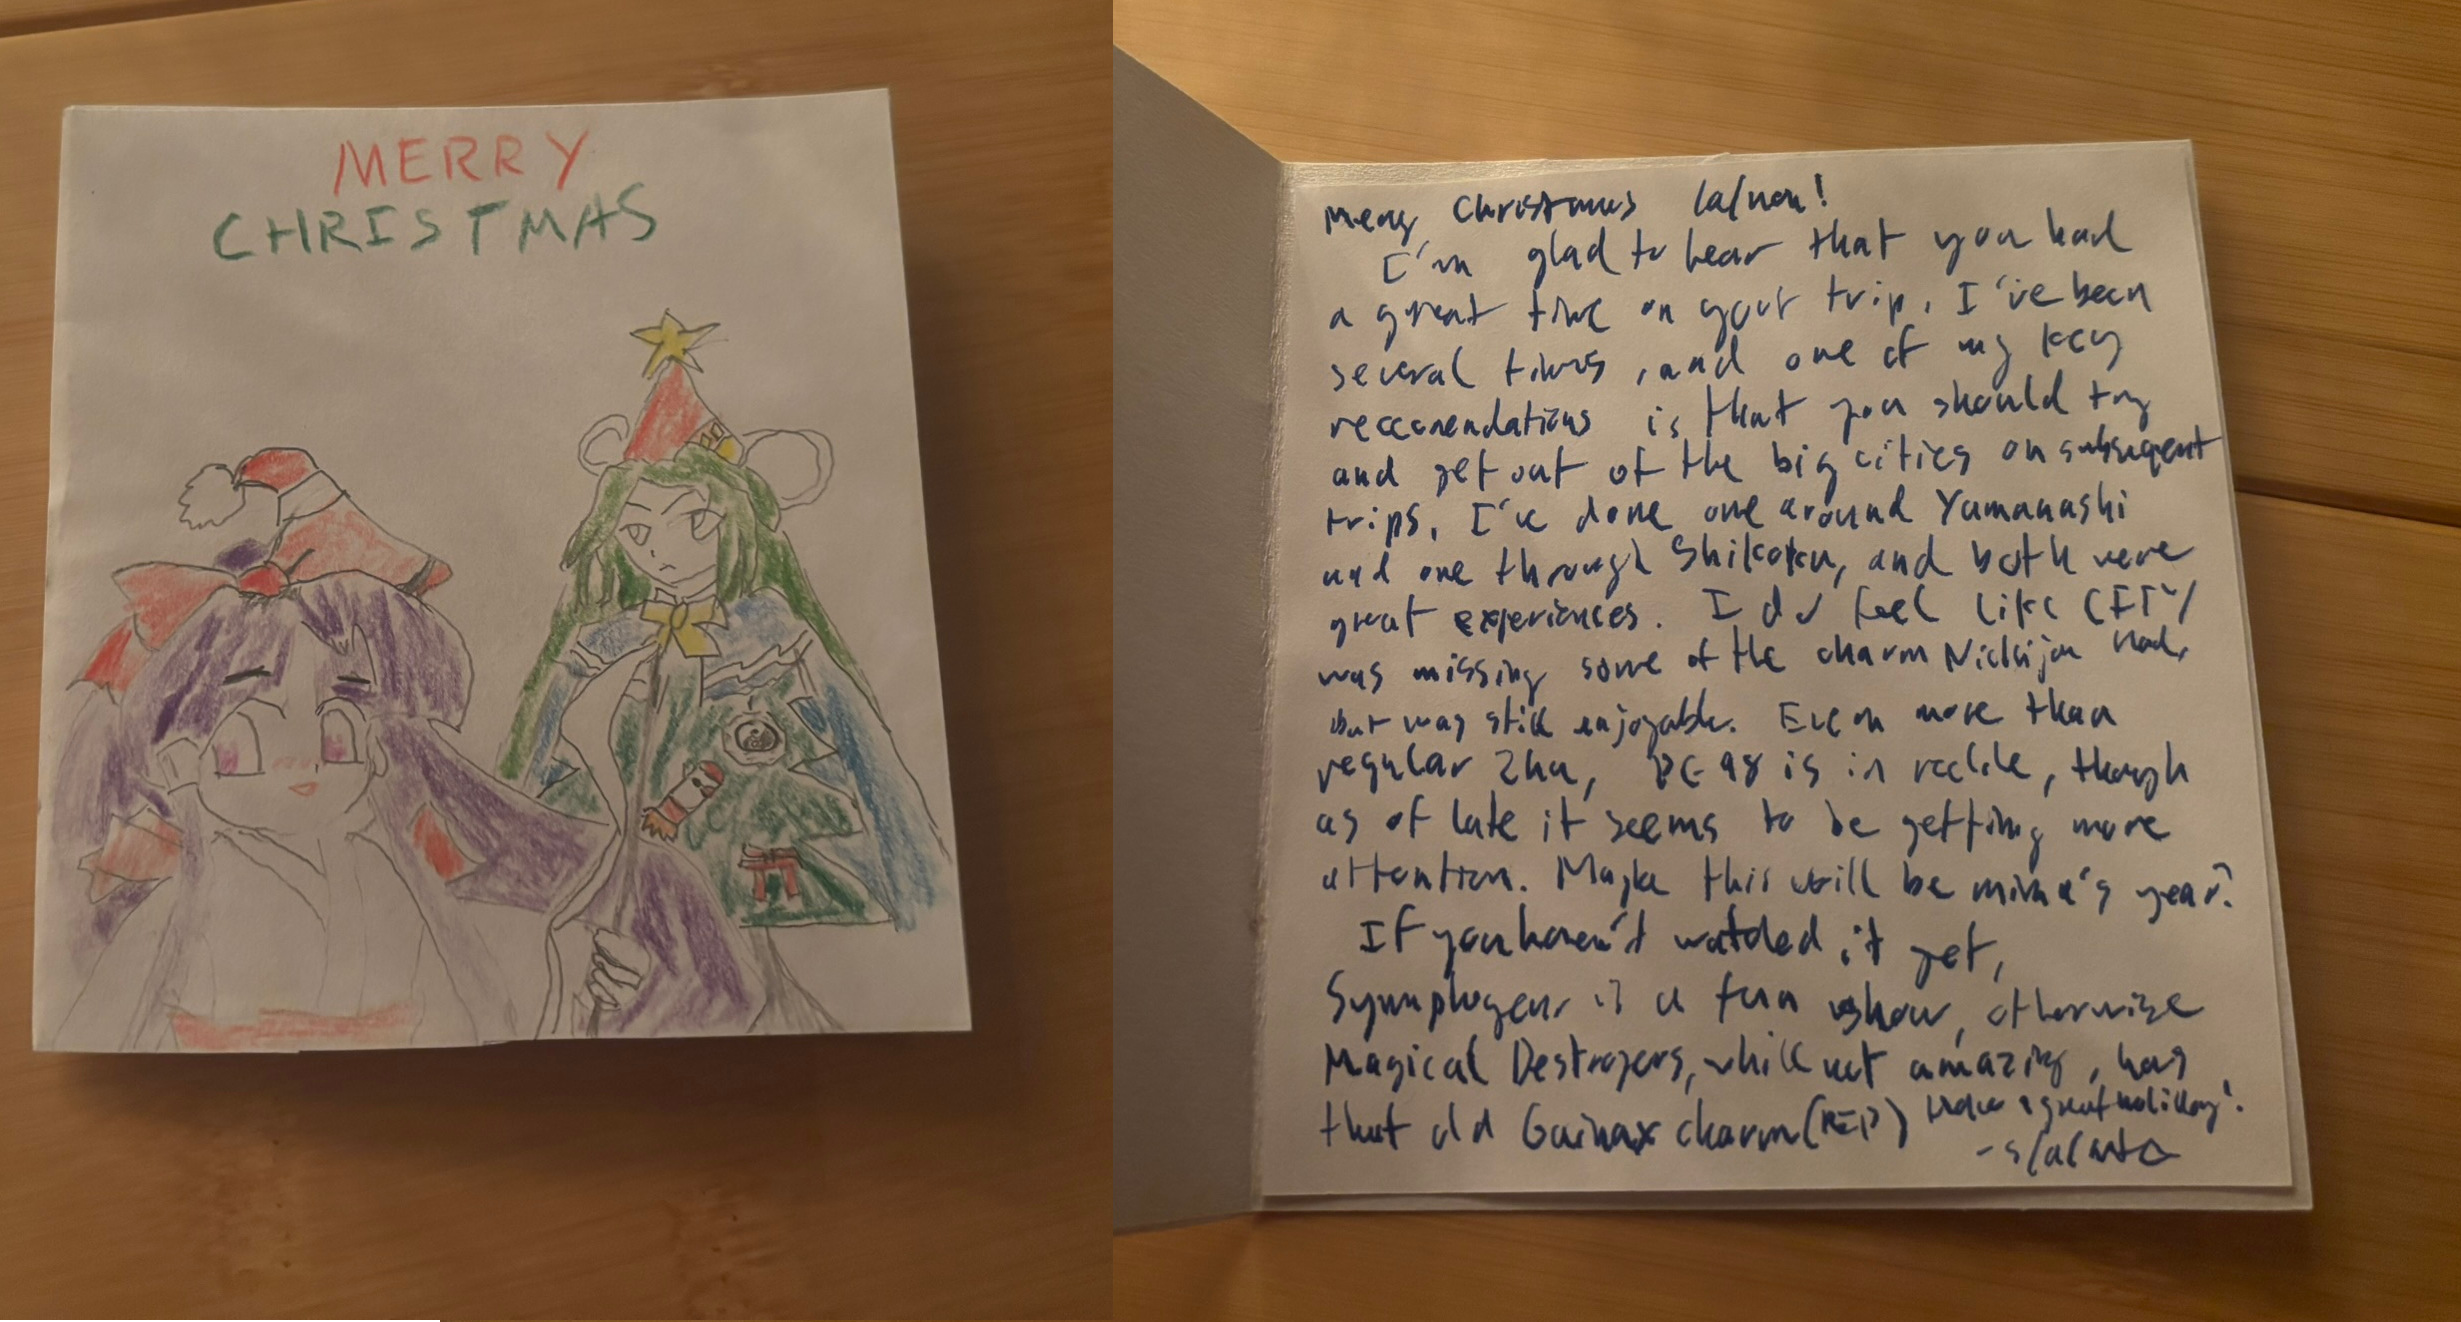 MERRY
CHRISTMAS
Merry Christmas la/non!
I'm glad to hear that you had
a great time on your trip. I've been
several times, and one of my key
reccomendations is that you should try
and get out of the big cities on subsequent
trips. I've done one around Yamanashi
and one through Shikoku, and both were
great experiences. I do feel like CITY
was missing some of the charm Nichijou had,
but was still enjoyable. Even more than
regular 2hu, PC-98 is in decline, though
as of late it seems to be getting more
attention. Maybe this will be mima's year?
If you haven't watched it yet,
Symphogear is a fun show, otherwise
Magical Destroyers, while not amazing, has
that old Gainax charm (RIP) Have a great holiday!